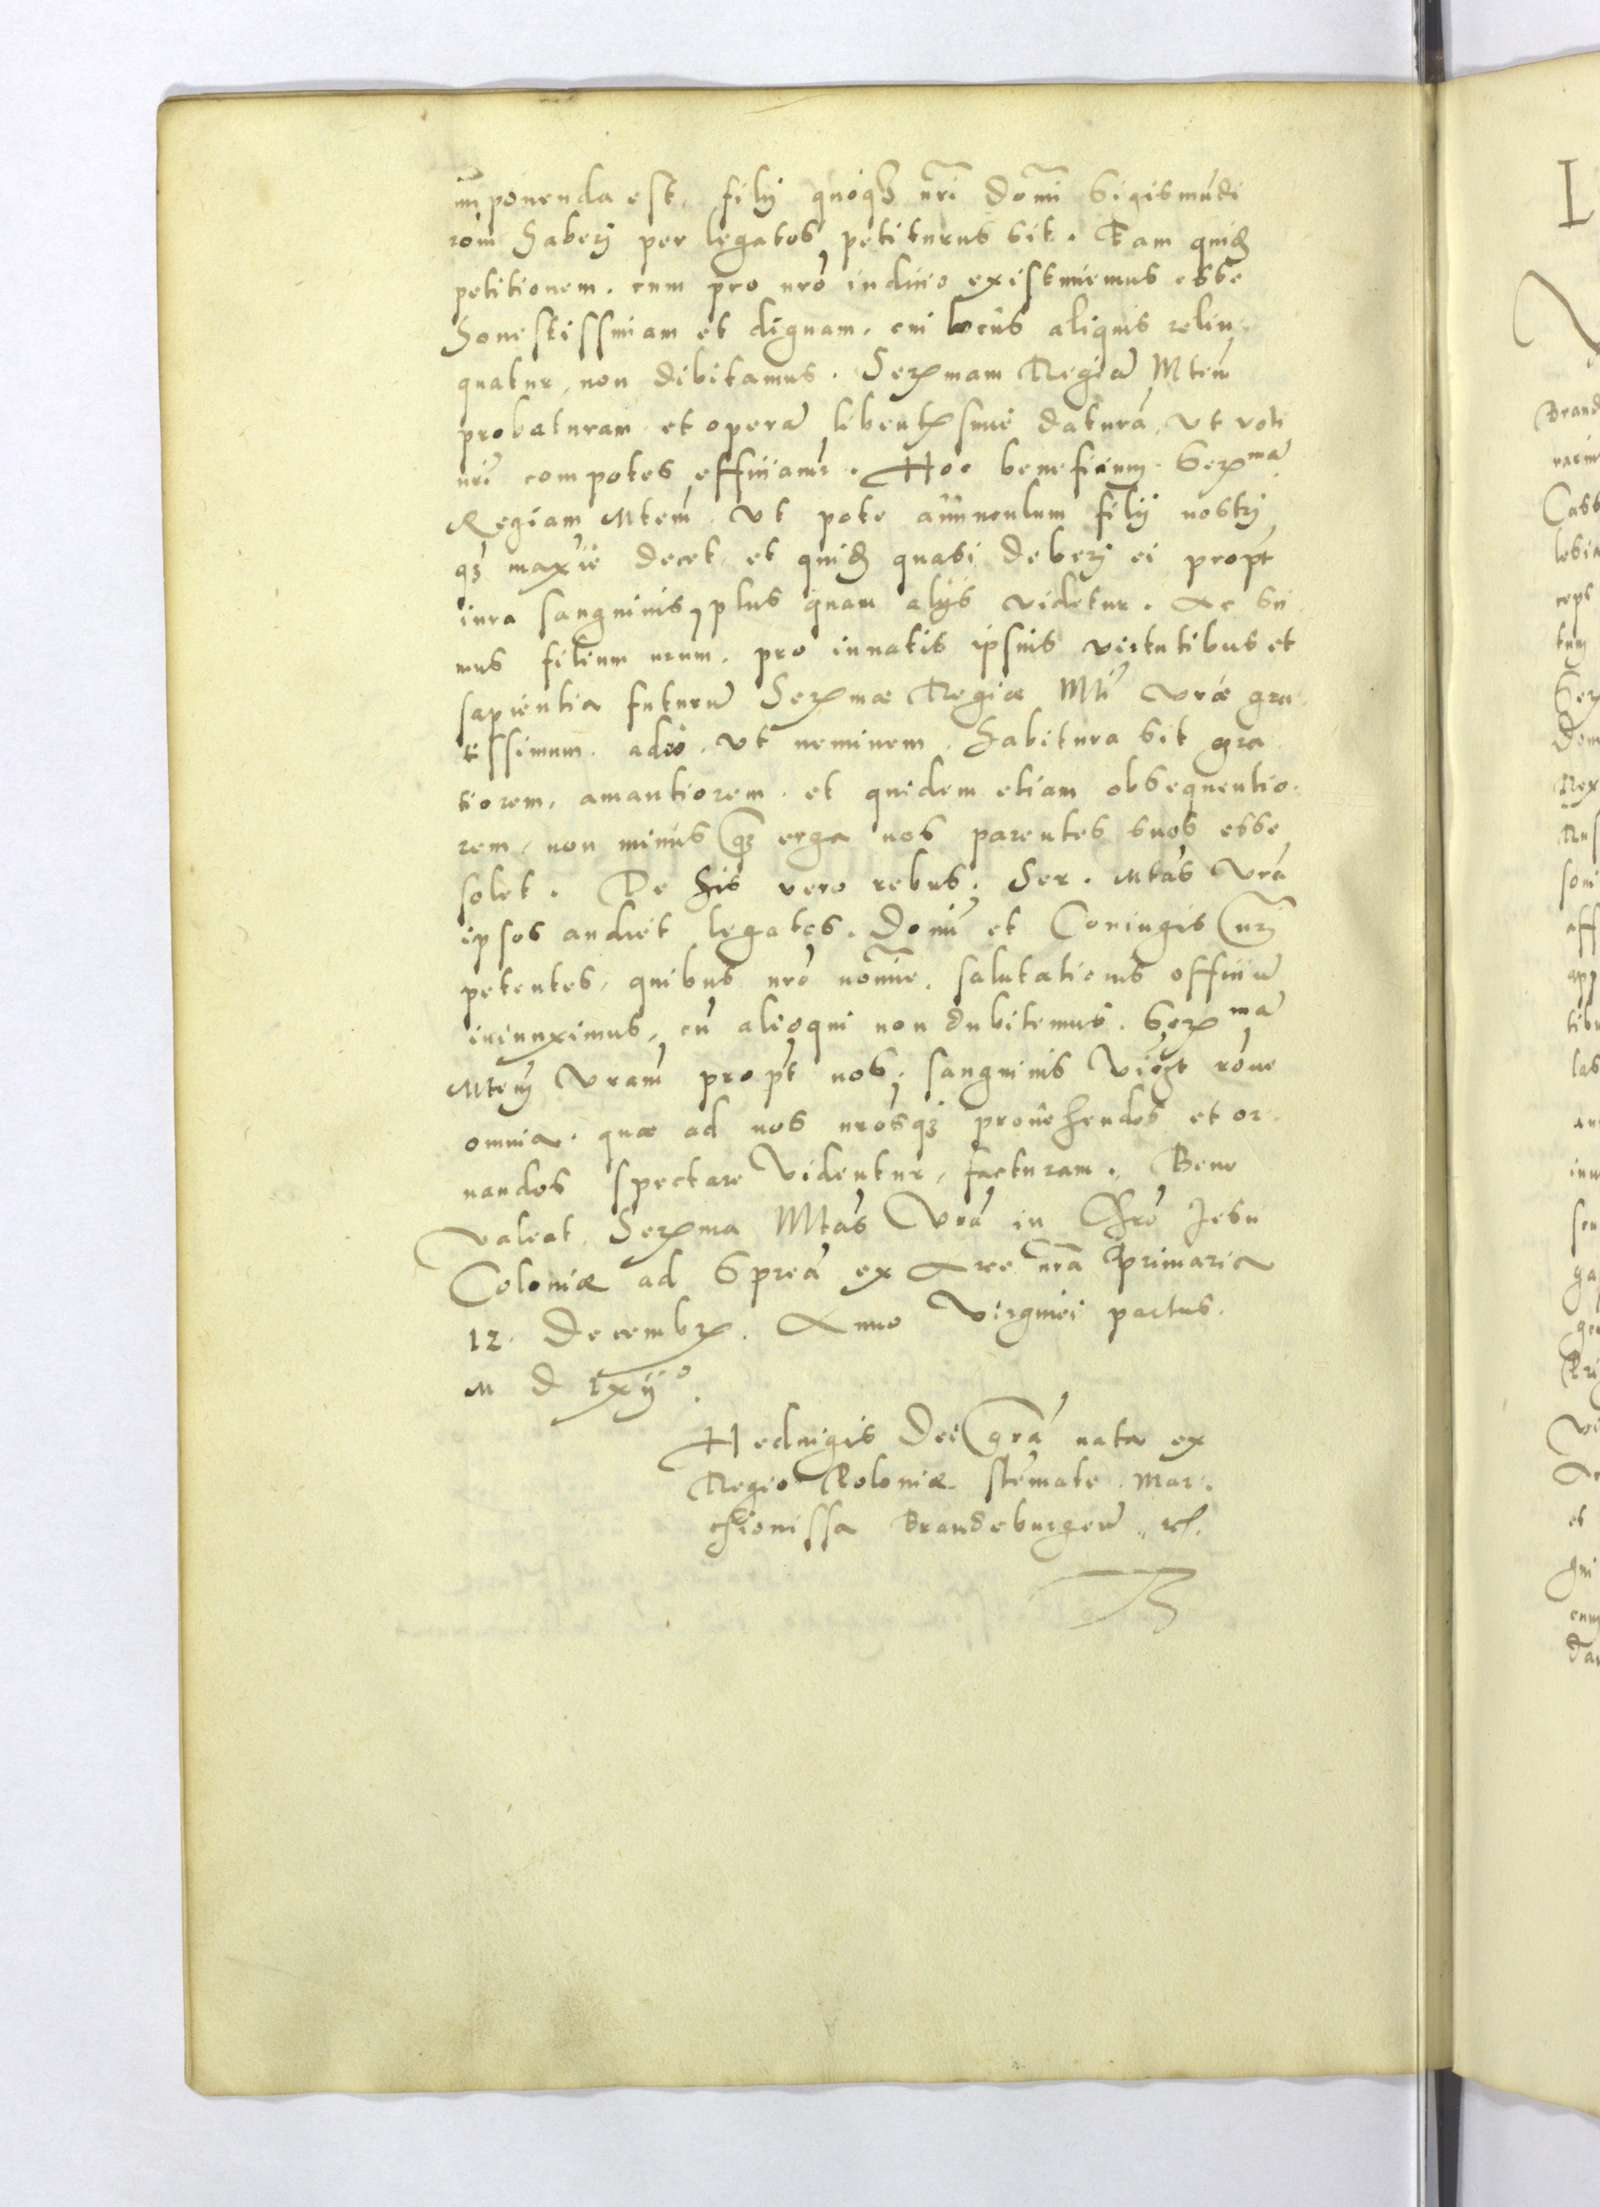 imponenda est, filij quoq3 nri domi Sigismudi
rom haberi per legatos petiturus sit. Eam quid
petitionem. cum pro nro iudicio existimemus esse
honestissimam et dignam. cui locus aliquis relin-
quatur, non dibitamus. Sermam Regia Mtem
probaturam et opera libentssime datura, Vt voti
nri compotes efficiamr. Hoc beneficium. Serma
Regiam Mtem. Vt pote auunculum filij nostri
q3 maxie decet, et quid quasi deberi ei propt
iura sanguinis, plus quam alijs videtur. Ac sci
mus filium nrum. pro innatis ipsius virtutibus et
sapientia futuru Sermae Regiae Mti Vrae gra-
tissimum. adeo. Vt neminem. habitura sit gra
tiorem, amantiorem. et quidem etiam obsequentio-
rem, non minus q3 erga nos parentes suos esse
solet. De his vero rebus. Ser. Mtas Vra
ipsos audiet legatos. Domi et Coniugis nri
petentes, quibus nro nomine. salutationis officiu
iniunximus, cu alioqui non dubitemus. Serma
Mtem Vram propt nos, sanguinis rone
omnia. quae ad nos nrosq3 prouehendos et or-
nandos spectare Videntur, facturam. Bene
Valeat. Serma Mtas Vra in Chro Jesu
Coloniae ad Sprea ex Arce nra primaria
12. Decembr. Anno Virginei partus.
M D lxijo.
Heduigis Dei gra nata ex
Regio Poloniae stemate. Mar-
chionissa Brandeburgen. rc.